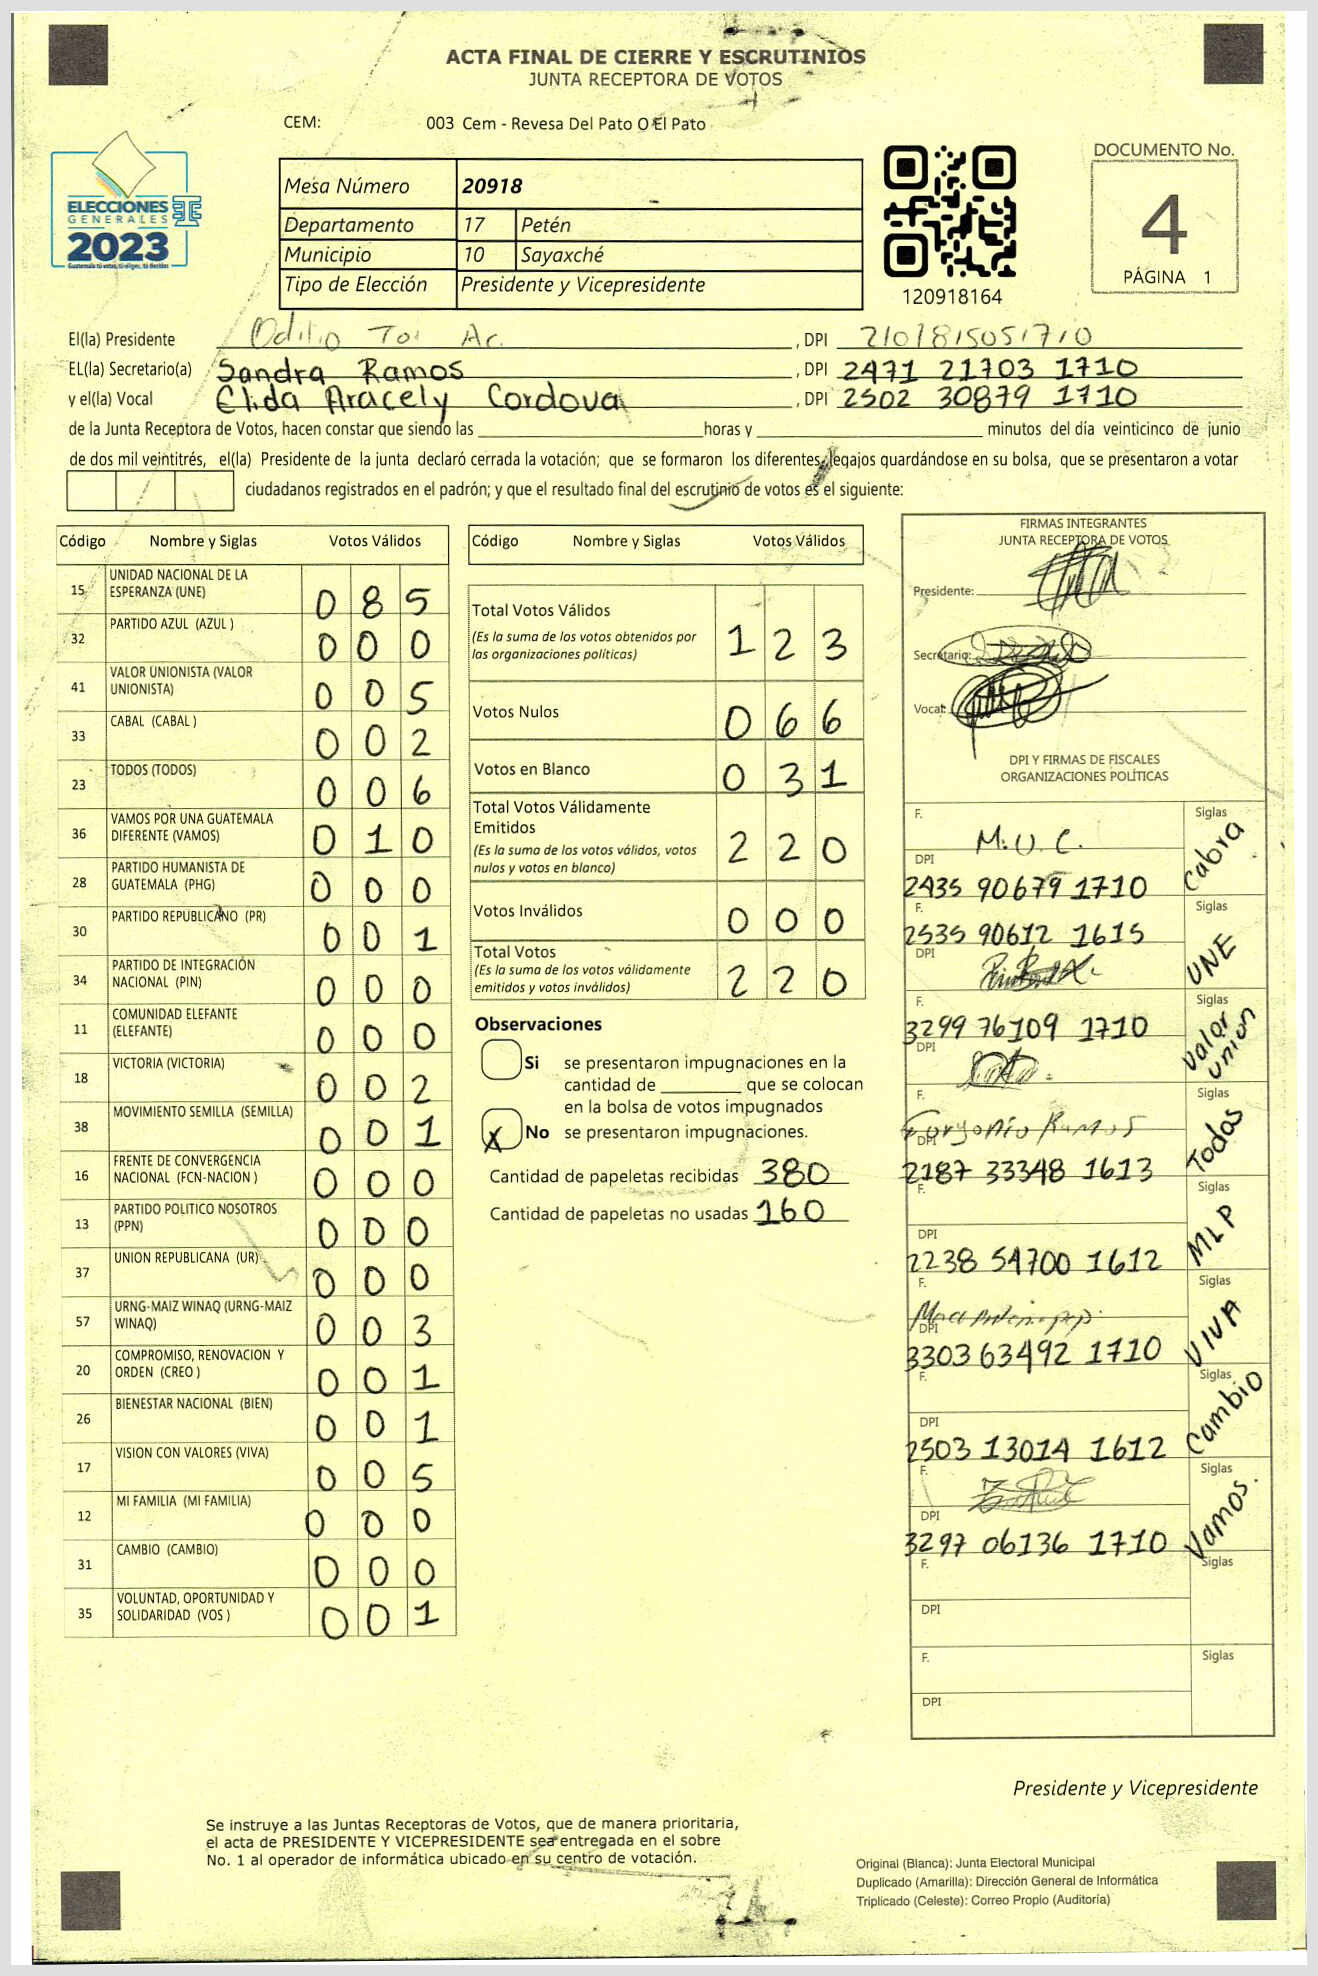 ACTA FINAL DE CIERRE Y ESCRUTINIOS
JUNTA RECEPTORA DE VOTOS
CEM: 003 Cem - Revesa Del Pato O El Pato
ELECCIONES
GENERALES
2023
Guatemala tú votas, tú eliges, tú decides
Mesa Número 20918
Departamento 17 Petén
Municipio 10 Sayaxché
Tipo de Elección Presidente y Vicepresidente
120918164
DOCUMENTO No.
4
PÁGINA 1
El(la) Presidente Odilio , DPI
EL(la) Secretario(a) Sandra Ramos , DPI 2471 21703 1710
y el(la) Vocal Elida Aracely Cordova , DPI 2502 30879 1710
de la Junta Receptora de Votos, hacen constar que siendo las horas y minutos del día veinticinco de junio
de dos mil veintitrés, el(la) Presidente de la junta declaró cerrada la votación; que se formaron los diferentes legajos quardándose en su bolsa, que se presentaron a votar
ciudadanos registrados en el padrón; y que el resultado final del escrutinio de votos es el siguiente:
Código Nombre y Siglas Votos Válidos
15 UNIDAD NACIONAL DE LA ESPERANZA (UNE) 0 8 5
32 PARTIDO AZUL (AZUL ) 0 0 0
41 VALOR UNIONISTA (VALOR UNIONISTA) 0 0 5
33 CABAL (CABAL ) 0 0 2
23 TODOS (TODOS) 0 0 6
36 VAMOS POR UNA GUATEMALA DIFERENTE (VAMOS) 0 1 0
28 PARTIDO HUMANISTA DE GUATEMALA (PHG) 0 0 0
30 PARTIDO REPUBLICANO (PR) 0 0 1
34 PARTIDO DE INTEGRACIÓN NACIONAL (PIN) 0 0 0
11 COMUNIDAD ELEFANTE (ELEFANTE) 0 0 0
18 VICTORIA (VICTORIA) 0 0 2
38 MOVIMIENTO SEMILLA (SEMILLA) 0 0 1
16 FRENTE DE CONVERGENCIA NACIONAL (FCN-NACION ) 0 0 0
13 PARTIDO POLITICO NOSOTROS (PPN) 0 0 0
37 UNION REPUBLICANA (UR) 0 0 0
57 URNG-MAIZ WINAQ (URNG-MAIZ WINAQ) 0 0 3
20 COMPROMISO, RENOVACION Y ORDEN (CREO ) 0 0 1
26 BIENESTAR NACIONAL (BIEN) 0 0 1
17 VISION CON VALORES (VIVA) 0 0 5
12 MI FAMILIA (MI FAMILIA) 0 0 0
31 CAMBIO (CAMBIO) 0 0 0
35 VOLUNTAD, OPORTUNIDAD Y SOLIDARIDAD (VOS ) 0 0 1
Código Nombre y Siglas Votos Válidos
Total Votos Válidos 1 2 3
(Es la suma de los votos obtenidos por
las organizaciones políticas)
Votos Nulos 0 6 6
Votos en Blanco 0 3 1
Total Votos Válidamente
Emitidos 2 2 0
(Es la suma de los votos válidos, votos
nulos y votos en blanco)
Votos Inválidos 0 0 0
Total Votos 2 2 0
(Es la suma de los votos válidamente
emitidos y votos inválidos)
Observaciones
Si se presentaron impugnaciones en la
cantidad de que se colocan
en la bolsa de votos impugnados
X No se presentaron impugnaciones.
Cantidad de papeletas recibidas 380
Cantidad de papeletas no usadas 160
FIRMAS INTEGRANTES
JUNTA RECEPTORA DE VOTOS
Presidente:
Secretario:
Vocal:
DPI Y FIRMAS DE FISCALES
ORGANIZACIONES POLÍTICAS
F. M.U.C. Siglas
DPI 2435 90679 1710 Cabra
F. 2535 90612 1615 Siglas
DPI UNE
F. 3299 76109 1710 Siglas
DPI Valor union
F. Ramos Siglas
DPI 2187 33348 1613 Todos
F. Siglas
DPI 2238 54700 1612 MLP
F. Siglas
DPI 3303 63492 1710 VIVA
F. Siglas
DPI 2503 13014 1612 Cambio
F. Siglas
DPI 3297 06136 1710 Vamos.
F. Siglas
DPI
F. Siglas
DPI
Presidente y Vicepresidente
Se instruye a las Juntas Receptoras de Votos, que de manera prioritaria,
el acta de PRESIDENTE Y VICEPRESIDENTE sea entregada en el sobre
No. 1 al operador de informática ubicado en su centro de votación.
Original (Blanca): Junta Electoral Municipal
Duplicado (Amarilla): Dirección General de Informática
Triplicado (Celeste): Correo Propio (Auditoría)